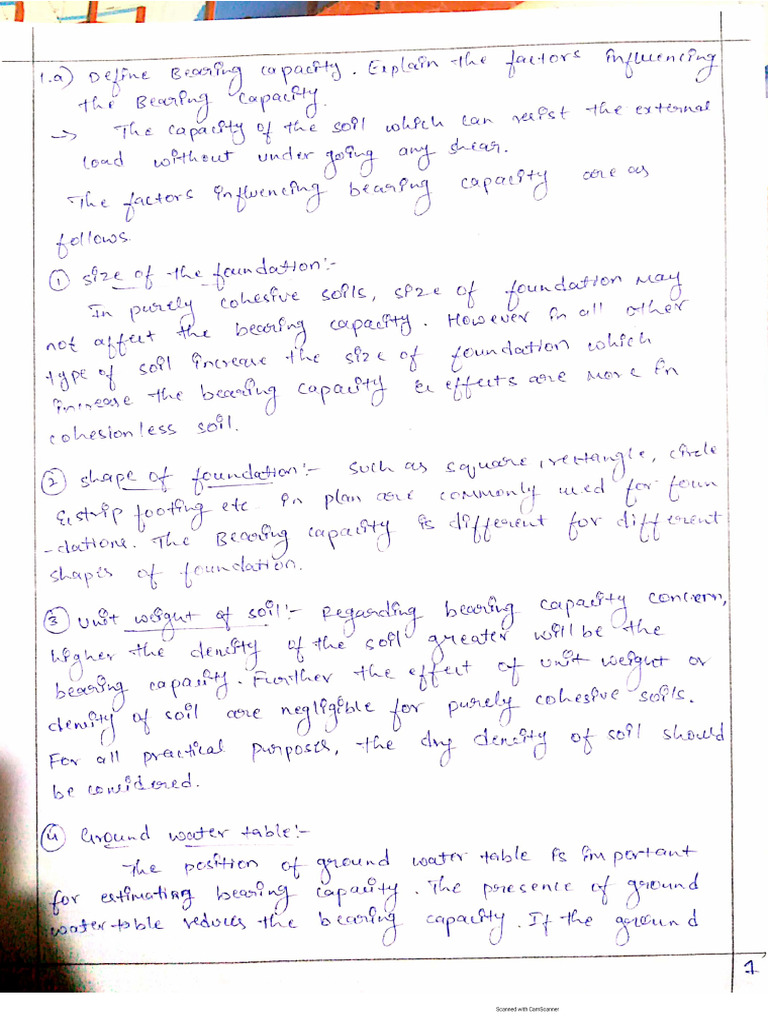 1.a) Define Bearing capacity. Explain the factors influencing
the Bearing Capacity.
→ The capacity of the soil which can resist the external
load without under going any shear.
The factors influencing bearing capacity are as
follows.
① size of the foundation:-
In purely cohesive soils, size of foundation may
not affect the bearing capacity. However in all other
type of soil increase the size of foundation which
increase the bearing capacity & effects are more in
cohesionless soil.
② shape of foundation:- such as square, rectangle, circle
& strip footing etc in plan are commonly used for foun
-dations. The Bearing capacity is different for different
shapes of foundation.
③ unit weight of soil:- Regarding bearing capacity concern,
higher the density of the soil greater will be the
bearing capacity. Further the effect of unit weight or
density of soil are negligible for purely cohesive soils.
For all practical purposes, the dry density of soil should
be considered.
④ Ground water table:-
The position of ground water table is important
for estimating bearing capacity. The presence of ground
water table reduces the bearing capacity. If the ground
1
Scanned with CamScanner